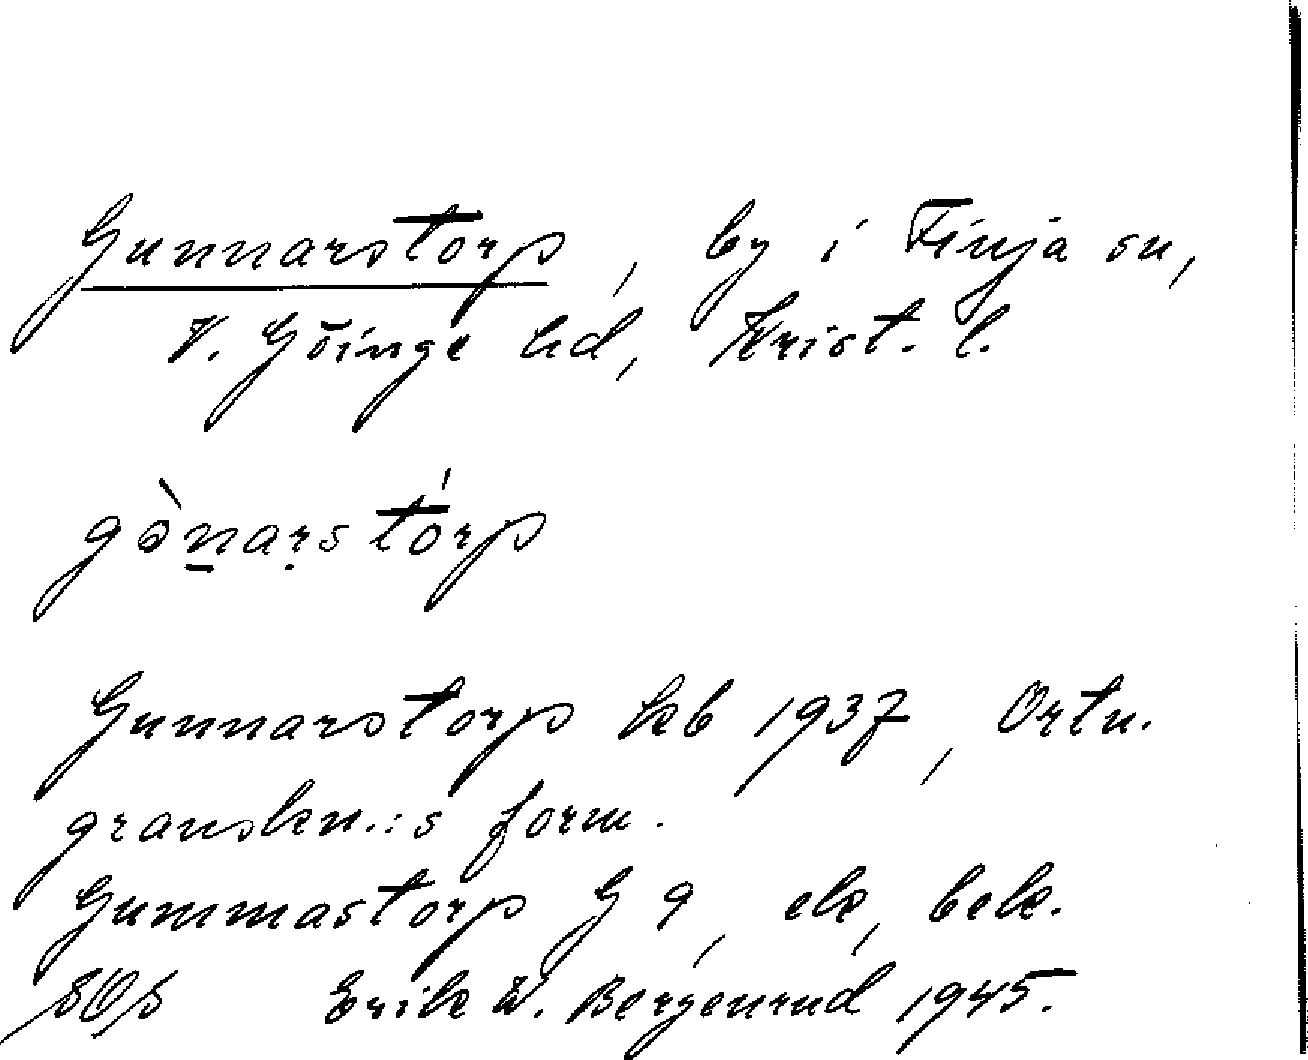 Gunnarstorp, by i Finja sn,
V. Göinge hd, Krist. l.
gònarstórp
Gunnarstorp kb 1937, Ortn.
granskn.:s form.
Gummastorp G 9, ek, bek.
SOS Erik W. Bergenrud 1945.